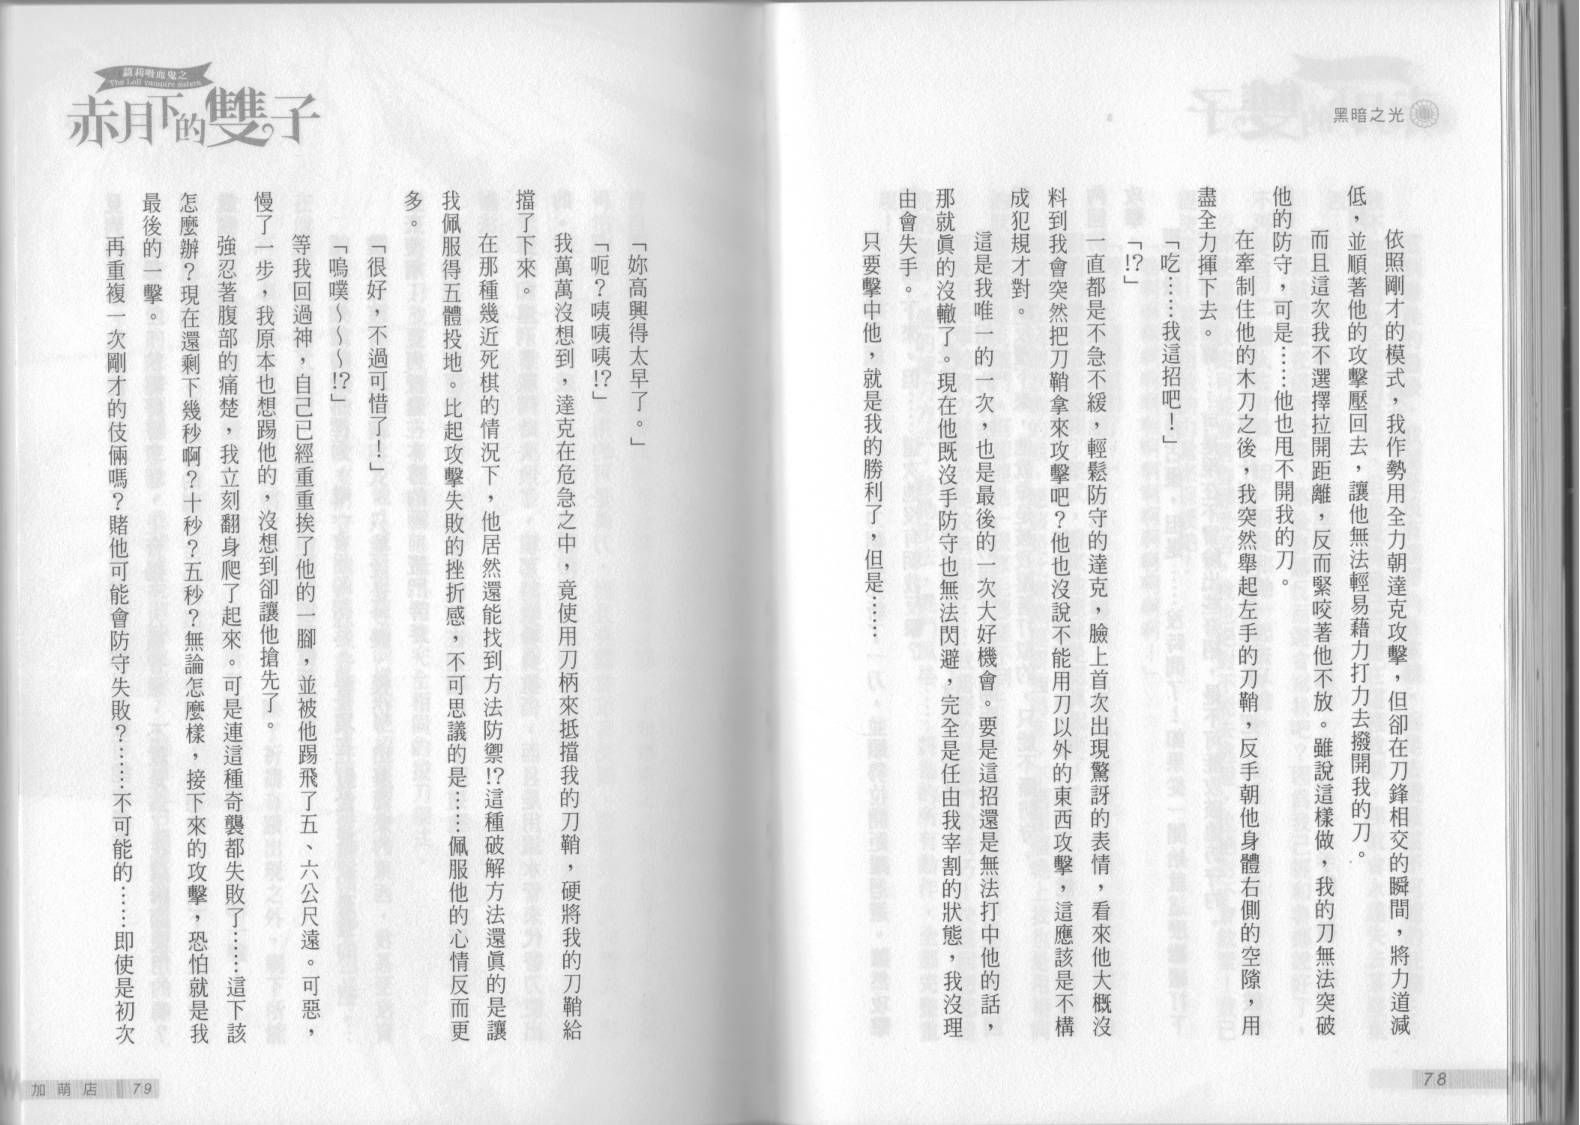 黑暗之光
依照剛才的模式，我作勢用全力朝達克攻擊，但卻在刀鋒相交的瞬間，將力道減
低，並順著他的攻擊壓回去，讓他無法輕易藉力打力去撥開我的刀。
而且這次我不選擇拉開距離，反而緊咬著他不放。雖說這樣做，我的刀無法突破
他的防守，可是……他也甩不開我的刀。
在牽制住他的木刀之後，我突然舉起左手的刀鞘，反手朝他身體右側的空隙，用
盡全力揮下去。
「吃……我這招吧！」
「!?」
一直都是不急不緩，輕鬆防守的達克，臉上首次出現驚訝的表情，看來他大概沒
料到我會突然把刀鞘拿來攻擊吧？他也沒說不能用刀以外的東西攻擊，這應該是不構
成犯規才對。
這是我唯一的一次，也是最後的一次大好機會。要是這招還是無法打中他的話，
那就真的沒轍了。現在他既沒手防守也無法閃避，完全是任由我宰割的狀態，我沒理
由會失手。
只要擊中他，就是我的勝利了，但是……
78
蘿莉吸血鬼之
The Loli vampire sisters
赤月下的雙子
「妳高興得太早了。」
「呃？咦咦咦!?」
我萬萬沒想到，達克在危急之中，竟使用刀柄來抵擋我的刀鞘，硬將我的刀鞘給
擋了下來。
在那種幾近死棋的情況下，他居然還能找到方法防禦!?這種破解方法還真的是讓
我佩服得五體投地。比起攻擊失敗的挫折感，不可思議的是……佩服他的心情反而更
多。
「很好，不過可惜了！」
「嗚噗～～～!?」
等我回過神，自己已經重重挨了他的一腳，並被他踢飛了五、六公尺遠。可惡，
慢了一步，我原本也想踢他的，沒想到卻讓他搶先了。
強忍著腹部的痛楚，我立刻翻身爬了起來。可是連這種奇襲都失敗了……這下該
怎麼辦？現在還剩下幾秒啊？十秒？五秒？無論怎麼樣，接下來的攻擊，恐怕就是我
最後的一擊。
再重複一次剛才的伎倆嗎？賭他可能會防守失敗？……不可能的……即使是初次
加萌店 79